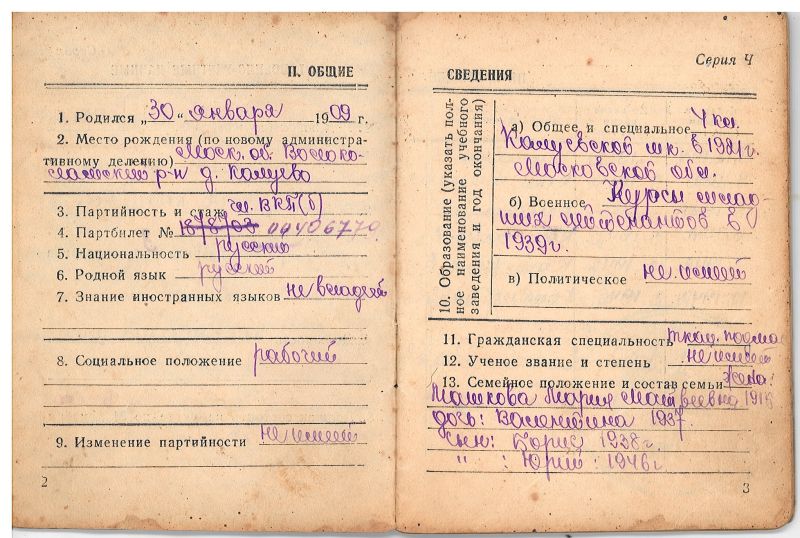 II. ОБЩИЕ
1. Родился „30" января 1909 г.
2. Место рождения (по новому администра-
тивному делению) Моск. об. Волоко-
ламский р-н д. Калуево
3. Партийность и стаж чл. ВКП(б)
4. Партбилет № 1878708 00406770
5. Национальность русский
6. Родной язык русский
7. Знание иностранных языков не владей
8. Социальное положение рабочий
9. Изменение партийности не имеет
2
Серия Ч
СВЕДЕНИЯ
10. Образование (указать пол-
ное наименование учебного
заведения и год окончания)
а) Общее и специальное 4 кл.
Калуевской шк. в 1921 г.
Московской обл.
б) Военное Курсы млад-
ших лейтенантов в
1939 г.
в) Политическое не имеет
11. Гражданская специальность ткац.
12. Ученое звание и степень не имеет
13. Семейное положение и состав семьи жена:
Мария Матвеевна
дочь: Валентина 1937.
сын: Борис 1938 г.
" : Юрий : 1946 г
3